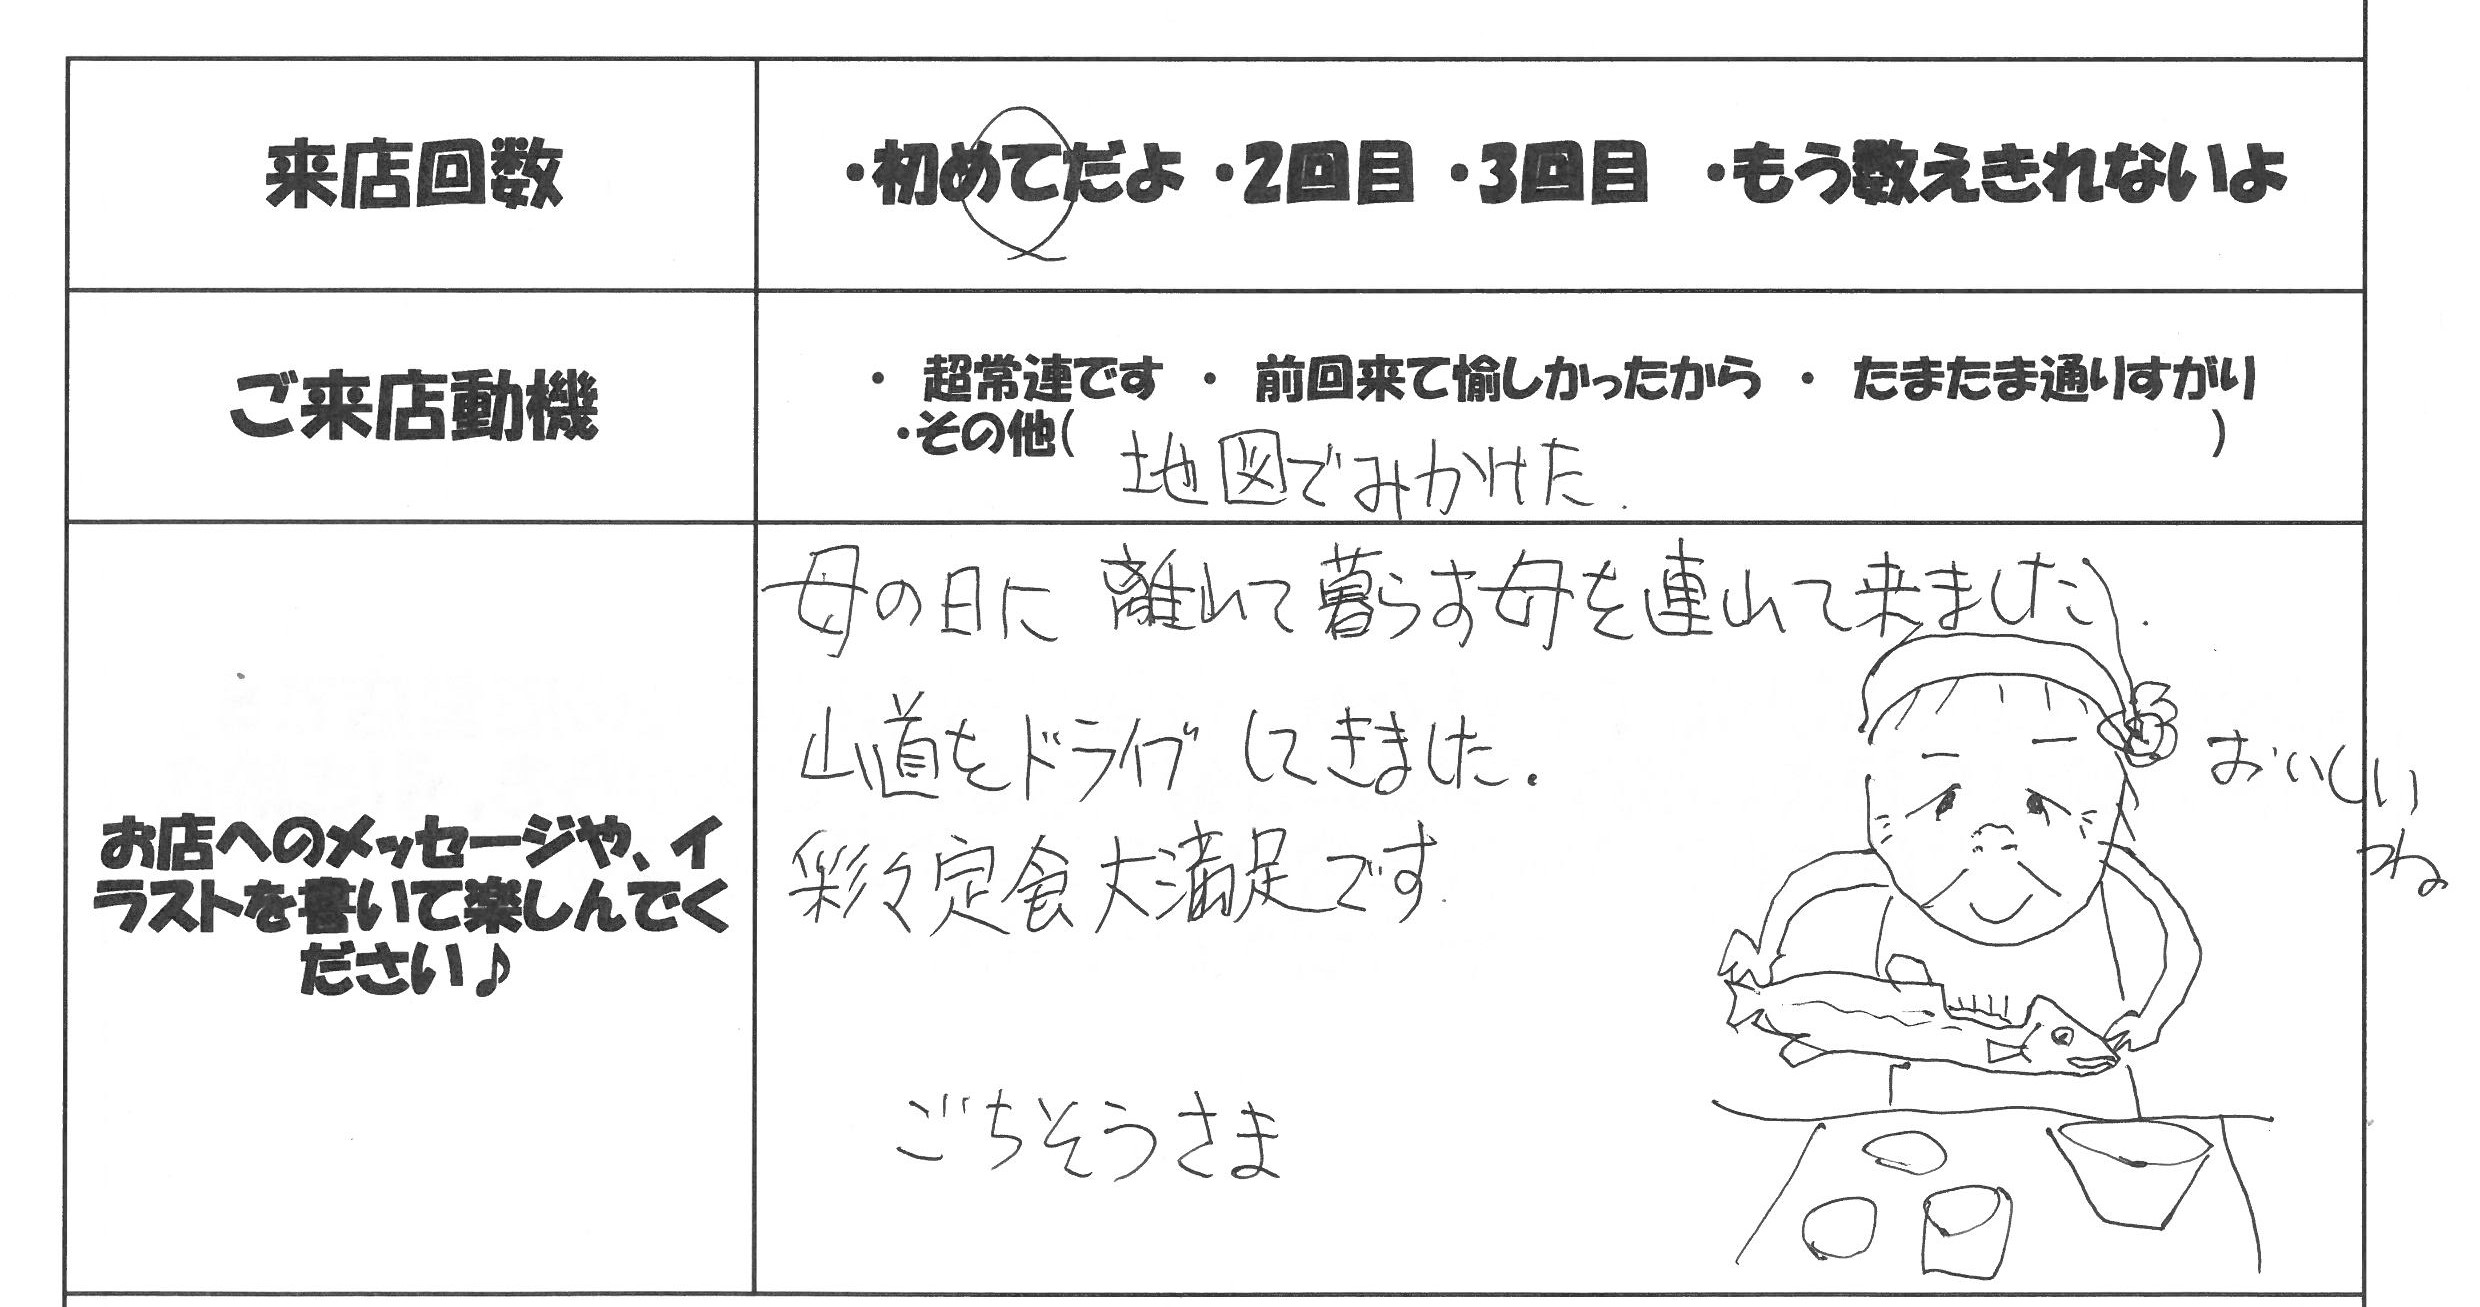 来店回数
・初めてだよ ・2回目 ・3回目 ・もう数えきれないよ
ご来店動機
・ 超常連です ・ 前回来て愉しかったから ・ たまたま通りすがり
・その他( )
地図でみかけた.
お店へのメッセージや、イ
ラストを書いて楽しんでく
ださい♪
母の日に 離れて暮らす母を連れて来ました.
山道をドライブ してきました.
彩々定食 大満足です.
ごちそうさま
おいしい
ね